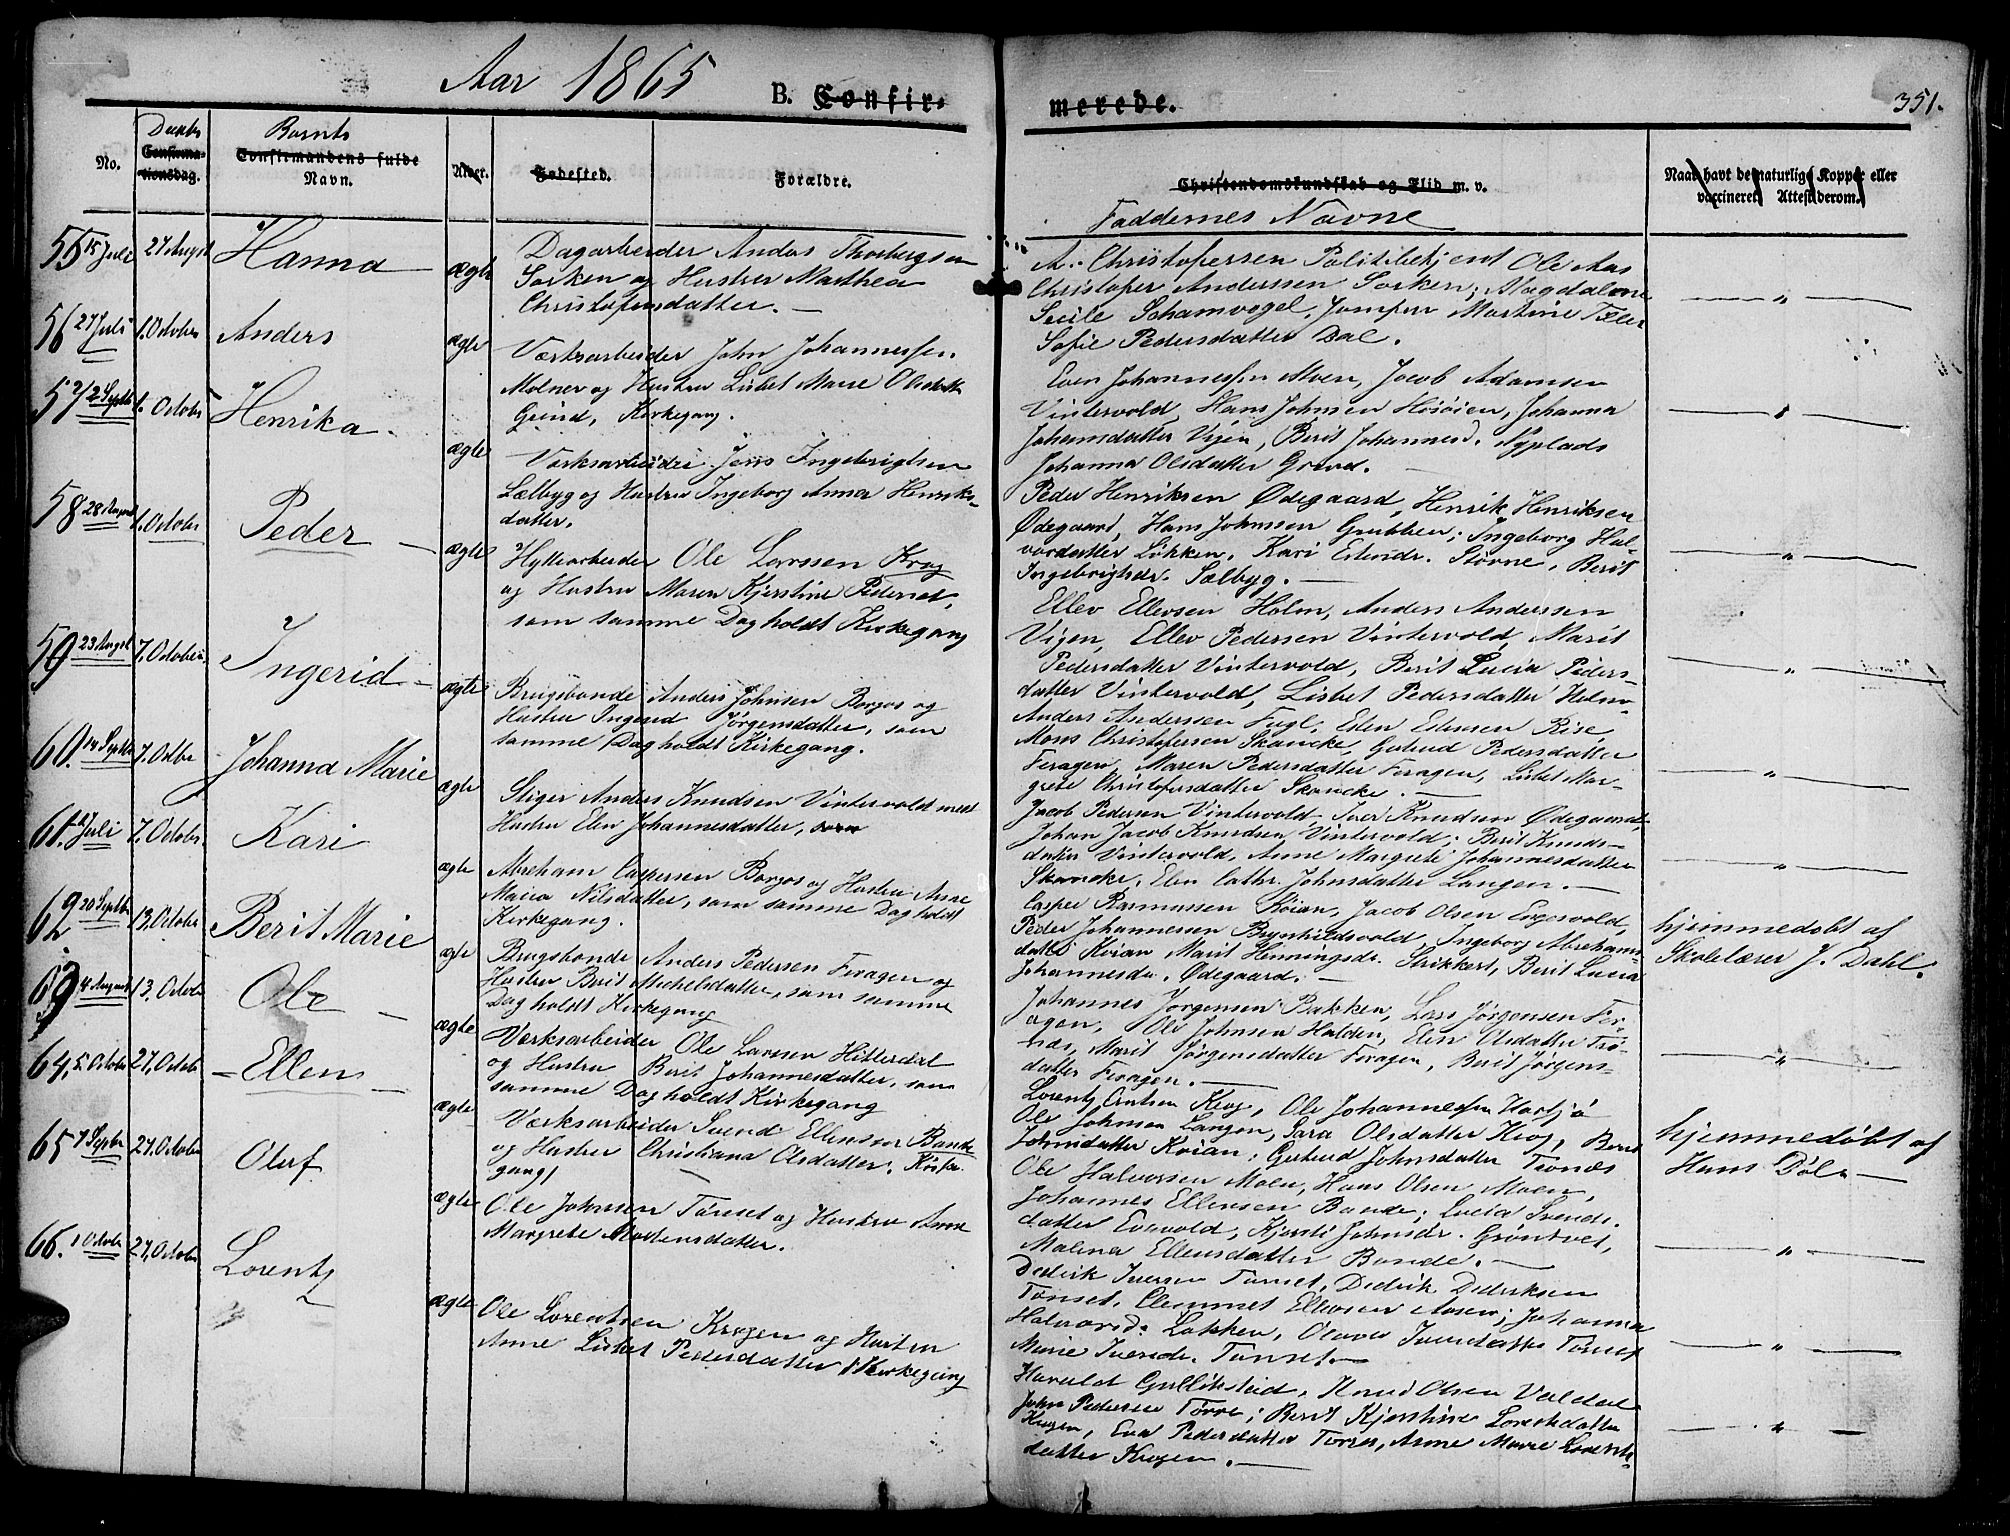 Aar 1865
B. Confir-
merede.
351.
No.
Daabs
Confirma-
tionsdag.
Barnets
Confirmandens fulde
Navn.
Alder.
Fødested.
Forældre.
Christendomskundskab og Flid m. v.
Faddernes Navne
Naar havt de naturlige Kopper eller
vaccineret. Attest derom.
55 15 Juli 27 August Hanna ægte
Dagarbeider Andas Thorbergsen
Sorken og Hustru Marthea
Christofersdatter. —
A. Christofersen Politibetjent Ole Aas
Christofer Anderssen Sorken; Magdalene
Secile Schamvogel, Jomfru Martine
Sofie Pedersdatter Dal.
— " —
56 27 Juli 1. October Anders ægte
Værksarbeider John Johannessen
Molner og Hustru Lisbet Marie Olsdatter
Grind, Kirkegang.
Even Johannessen Moen, Jacob Adamsen
Vintervold, Hans Johnsen Høsøien, Johanna
Johansdatter Vigen, Berit Johannesd. Nyplads
Johanna Olsdatter Grind. —
— " —
57 2 Septbr 1. October Henrika ægte
Værksarbeider Jens Ingebrigtsen
Sælbyg og Hustru Ingeborg Anna Henriks-
datter.
Peder Henriksen Ødegaard, Henrik Henriksen
Ødegaard, Hans Johnssen Grubben; Ingeborg Hal-
vordatter Løkken, Kari Erlendr. Størne, Berit
Ingebrigtsdr. Sælbyg. —
— " —
58 28 August 1. October Peder — ægte
Hyttearbeider Ole Larssen Krog
og Hustru Maren Kjerstine Pedersdt.
som samme Dag holdt Kirkegang
Ellev Ellevsen Holm, Anders Anderssen
Vigen, Ellev Pedersen Vintervold, Marit
Pedersdatter Vintervold, Berit Lucia Peders-
datter Vintervold, Lisbet Pedersdatter Holm.
— " —
59 23 Augst 7. October Ingerid — ægte
Brugsbonde Anders Johnsen Borgos og
Hustru Ingerid Jørgensdatter, som
samme Dag holdt Kirkegang.
Anders Anderssen Fugl, Eden Edensen Rise,
Mons Christofersen Skancke, Gutrud Pedersdatter
Feragen, Maren Pedersdatter Feragen, Lisbet Mar-
grete Christofersdatter Skancke. —
— " —
60. 14 Septbr 7. Octbr Johanna Marie ægte
Stiger Anders Knudsen Vintervold med
Hustru Elen Johannesdatter, som
Jacob Pedersen Vintervold, Iver Knudsen Ødegaard,
Johan Jacob Knudsen Vintervold; Berit Knuds-
datter Vintervold, Anne Margrete Johannesdatter
Skancke, Elen Cathr. Johnsdatter Langen. —
— " —
61. Juli 7. October Kari ægte
Abraham Caspersen Borgos og Hustru Anne
Maria Nilsdatter, som samme Dag holdt
Kirkegang.
Casper Rasmussen Koian, Jacob Olsen Engesvold,
Peder Johannessen Brynhildsvold, Ingeborg Abrahams-
datter Koian Marit Henningsdr. Strikkert, Berit Lucia
Johannesdr. Ødegaard. —
— " —
62 20 Septbr 13. October Berit Marie ægte
Brugsbonde Anders Pedersen Feragen og
Hustru Berit Michelsdatter, som samme
Dag holdt Kirkegang
Johannes Jørgensen Bakken, Lars Jørgensen Fer-
agen, Ole Johnsen Halden, Elen Olsdatter Trø-
næs, Marit Jørgensdatter Feragen, Berit Jørgens-
datter Feragen. —
hjemmedøbt af
Skolelærer J. Dahl.
63 4 August 13. October Ole — ægte
Værksarbeider Ole Larssen Hitterdal
og Hustru Berit Johannesdatter, som
samme Dag holdt Kirkegang
Lorentz Arntsen Krog, Ole Johannessen Harsjø
Ole Johnsen Langen, Sara Olsdatter Krog, Berit
Johnsdatter Koian; Gutrud Johnsdatter Trønæs
— " —
64, 5. October 27. October — Ellen — ægte
Værksarbeider Svend Ellensen Bande
og Hustru Christiana Olsdatter. Kirke-
gang/
Ole Halvorsen Moln, Hans Olsen Molen,
Johannes Ellensen Bande; Lucia Svends-
datter Evavold, Kjersti Johnsdr. Grøntvet,
Malena Ellensdatter Bande. —
hjemmedøbt af
Hans Døl. —
65 7 Septbr 27. October Oluf ægte
Ole Johnsen Tønset og Hustru Anne
Margrete Mortensdatter.
Didrik Iversen Tønset, Didrik Dideriksen
Tønset, Clemmet Ellevsen Aasen; Johanna
Halvorsd. Løkken, Olava Iversdatter Tønset
Marie Iversdr. Tønset. —
— " —
66. 1 October 27. October Lorentz ægte
Ole Lorentsen Krogen og Hustru
Anne Lisbet Pedersdatter / Kirkegang
Harald Gulliksstad, Knud Olsen Valdal
John Pedersen Torre; Berit Kjerstine Lorentsdatter
Krogen, Eva Pedersdatter Torres, Anne Marie Lorents-
datter Krogen. —
— " —